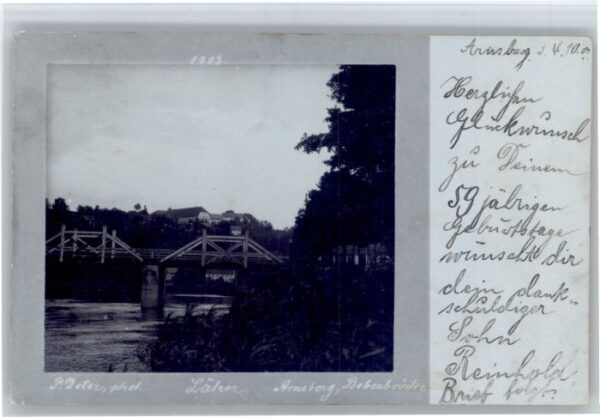 1903.
Arnsberg, d. 4.10.0
Herzlichen
Glückwunsch
zu Deinem
59 jährigen
Geburtstage
wünscht dir
dein dank-
schuldiger
Sohn
Reinhold.
Brief folgt.
phot.
Lähn
Arnsberg, Boberbrücke